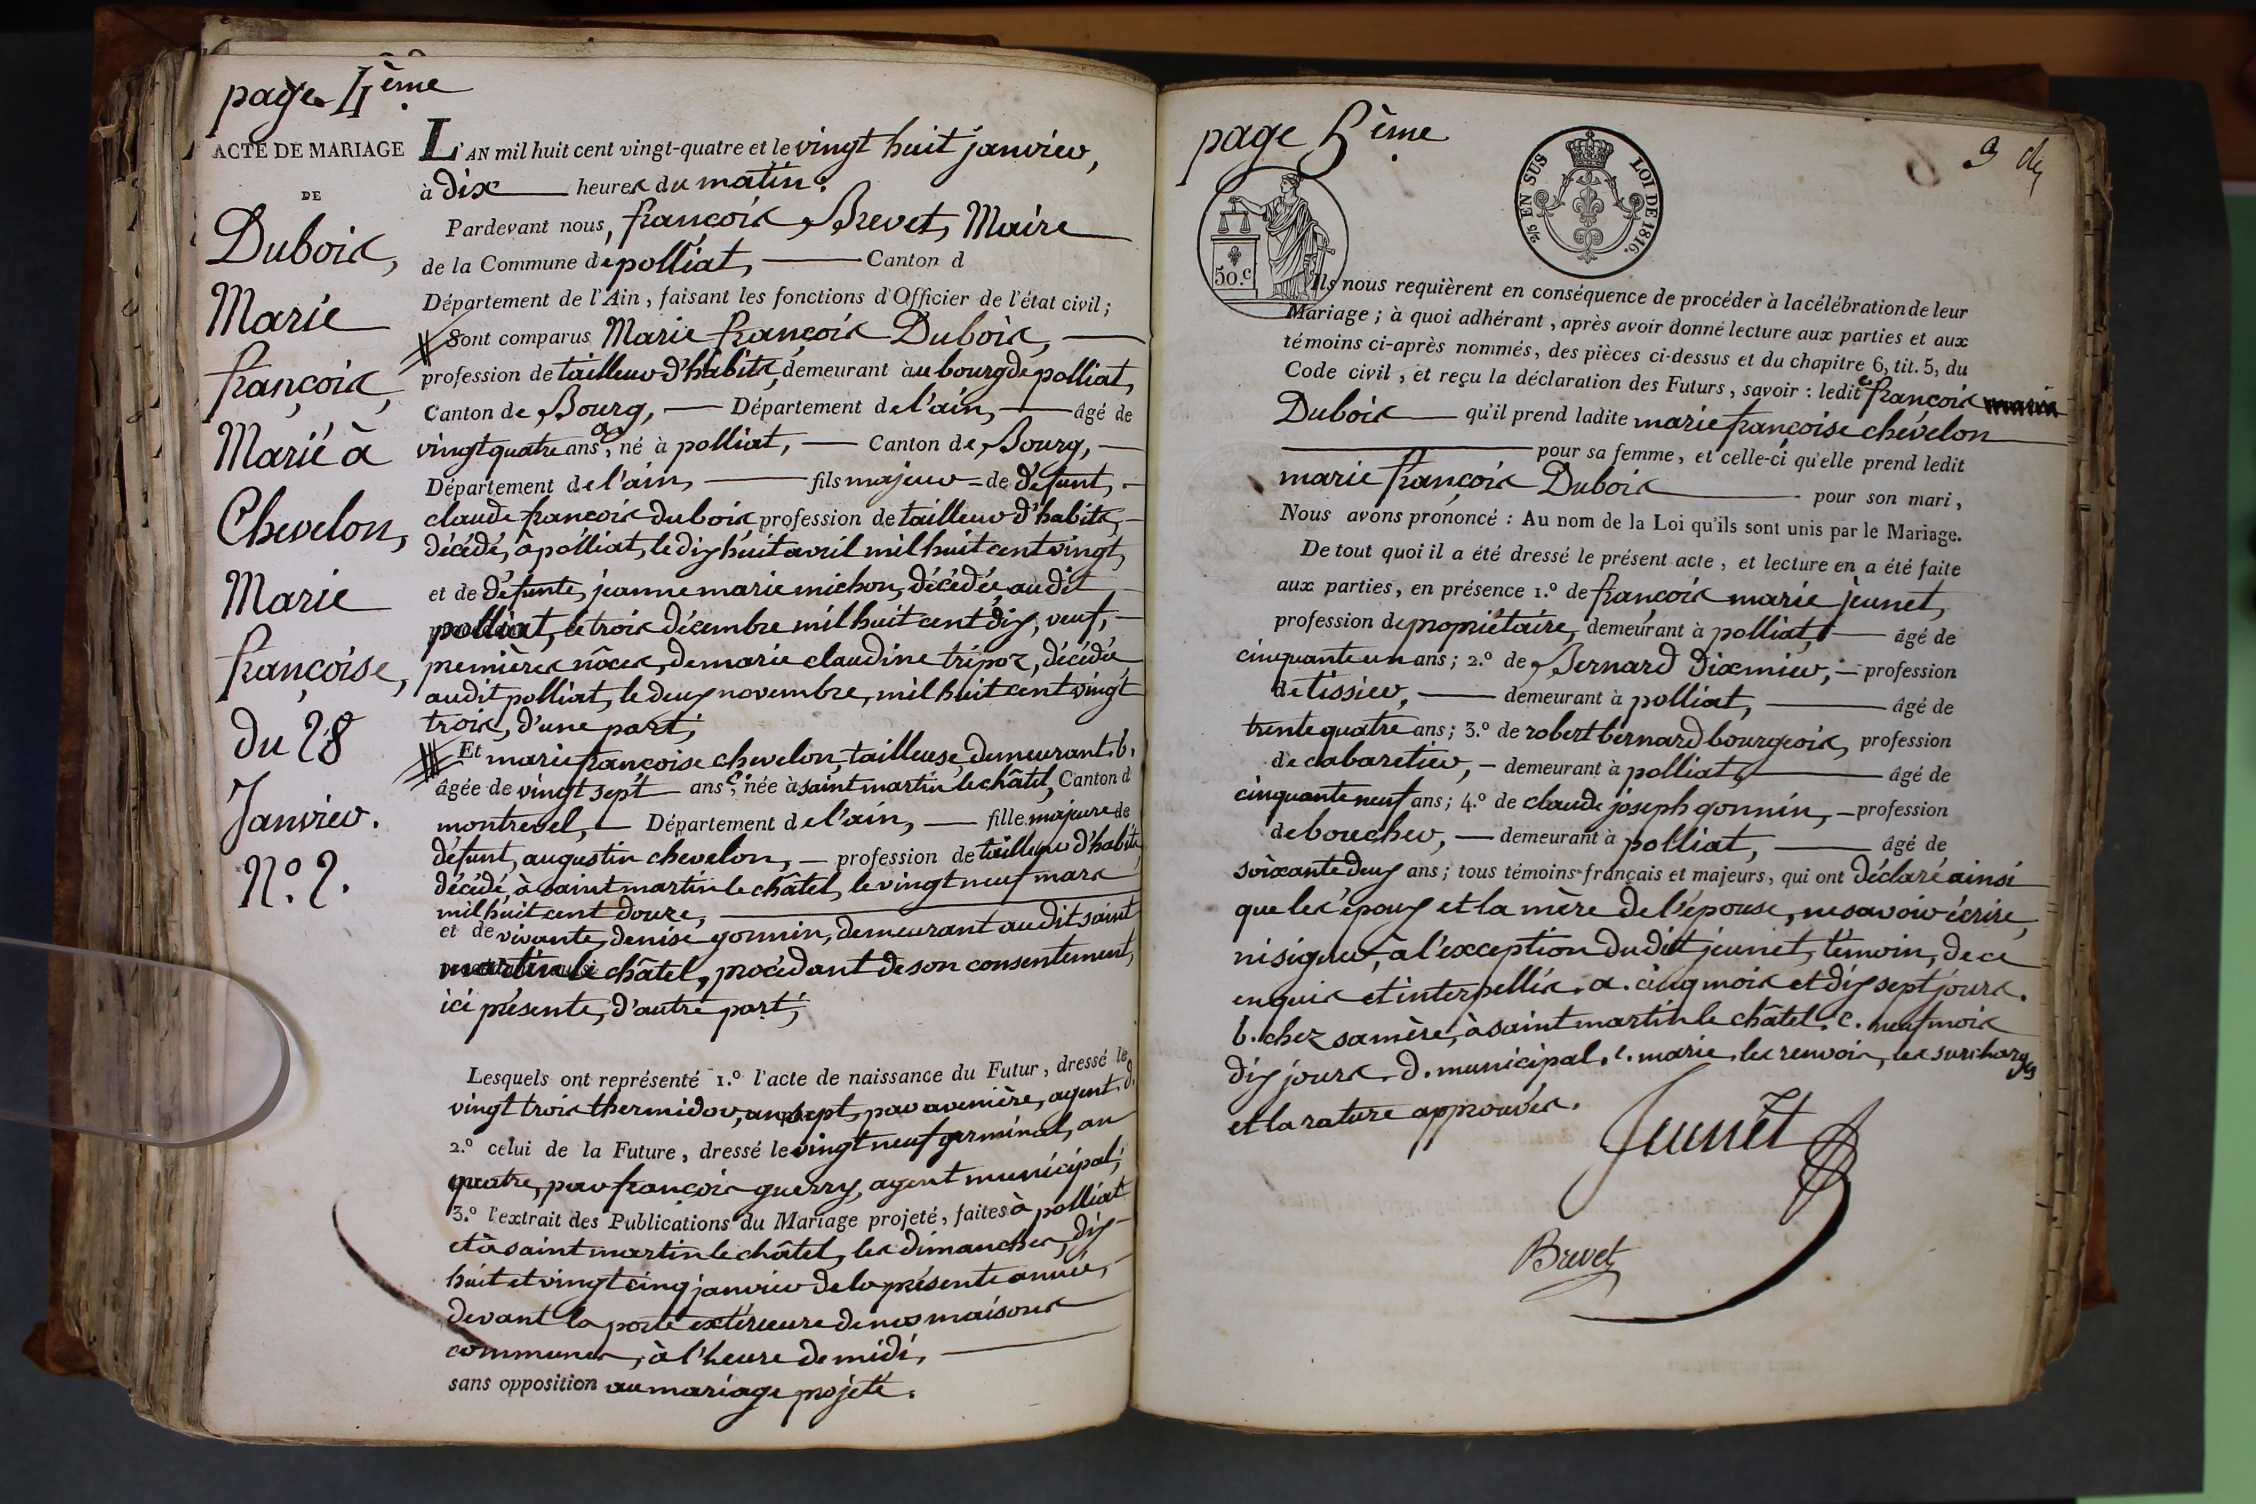 page 4ème
ACTE DE MARIAGE
DE
Dubois,
Marie
françois,
Marié à
Chevelon,
Marie
françoise,
du 28
Janvier.
N.o 2.
L'AN mil huit cent vingt-quatre et le vingt huit janvier,
à dix heures du matin.
Pardevant nous, françois Brevet, Maire
de la Commune de polliat, Canton d
Département de l'Ain, faisant les fonctions d'Officier de l'état civil;
Sont comparus Marie françois Dubois,
profession de tailleur d'habits, demeurant àu bourg de polliat,
Canton de Bourg, Département de l'ain, âgé de
vingt quatre ans a., né à polliat, Canton de Bourg,
Département de l'ain, fils majeur de défunt,
claude françois dubois profession de tailleur d'habits,
décédé, à polliat, le dix huit avril mil huit cent vingt,
et de défunte, jeanne marie michon, décédée, audit
polliat, le trois décembre mil huit cent dix, veuf,
premières nôces, de marie claudine tripoz, décédée,
audit polliat, le deux novembre, mil huit cent vingt
trois, d'une part;
Et marie françoise chevelon, tailleuse, demeurant. b.
âgée de vingt sept ans c., née à saint martin le châtel, Canton d
montrevel, Département de l'ain, fille majeure de
défunt, augustin chevelon, profession de tailleur d'habits,
décédé, à saint martin le châtel, le vingt neuf mars
mil huit cent douze,
et de vivante, denise gonnin, demeurant audit saint
martin le châtel, procédant de son consentement,
ici présente, d'autre part;
Lesquels ont représenté 1.o l'acte de naissance du Futur, dressé le
vingt trois thermidor, an sept, par avenière, agent d.
2.o celui de la Future, dressé le vingt neuf germinal, an
quatre, par françois guerry, agent municipal;
3.o l'extrait des Publications du Mariage projeté, faites à polliat
et à saint martin le châtel, les dimanches, dix
huit et vingt cinq janvier de la présente année,
devant la porte extérieure de nos maisons
communes, à l'heure de midi,
sans opposition au mariage projeté.
page 5ème
3
2/5 EN SUS LOI DE 1816.
50.c
Ils nous requièrent en conséquence de procéder à la célébration de leur
Mariage; à quoi adhérant, après avoir donné lecture aux parties et aux
témoins ci-après nommés, des pièces ci-dessus et du chapitre 6, tit. 5, du
Code civil, et reçu la déclaration des Futurs, savoir: ledit e françois
Dubois qu'il prend ladite marie françoise chevelon
pour sa femme, et celle-ci qu'elle prend ledit
marie françois Dubois pour son mari,
Nous avons prononcé: Au nom de la Loi qu'ils sont unis par le Mariage.
De tout quoi il a été dressé le présent acte, et lecture en a été faite
aux parties, en présence 1.o de françois marie jeunet,
profession de propriétaire, demeurant à polliat, âgé de
cinquante un ans; 2.o de Bernard Dixmier, profession
de tissier, demeurant à polliat, âgé de
trente quatre ans; 3.o de robert bernard bourgeois, profession
de cabaretier, demeurant à polliat, âgé de
cinquante neuf ans; 4.o de claude joseph gonnin, profession
de boucher, demeurant à polliat, âgé de
soixante deux ans; tous témoins français et majeurs, qui ont déclaré ainsi
que les époux et la mère de l'épouse, ne savoir écrire,
ni signer, à l'exception dudit jeunet, témoin, de ce
enquis et interpellés. a. cinq mois et dix sept jours.
b. chez sa mère, à saint martin le châtel. c. neuf mois
dix jours. d. municipal. e. marie. les renvois, les surcharges
et la rature approuvés.
Jeunet
Brevet